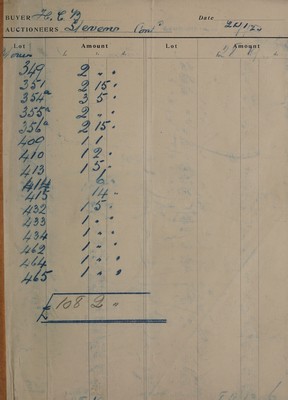 BUYER H. C. B Date
AUCTIONEERS Stevens 2N1
Lot Amount Lot Amount
349 2 " "
351 2 15 "
354a 3 5 "
355a 2 " "
356a 2 15 "
409 1 1
410 1 2 "
413 1 5 "
414 6 "
415 14 "
432 1 5 "
433 1 " "
434 1 " "
462 1 " "
464 1 " "
465 1 " "
£ 108 2 "